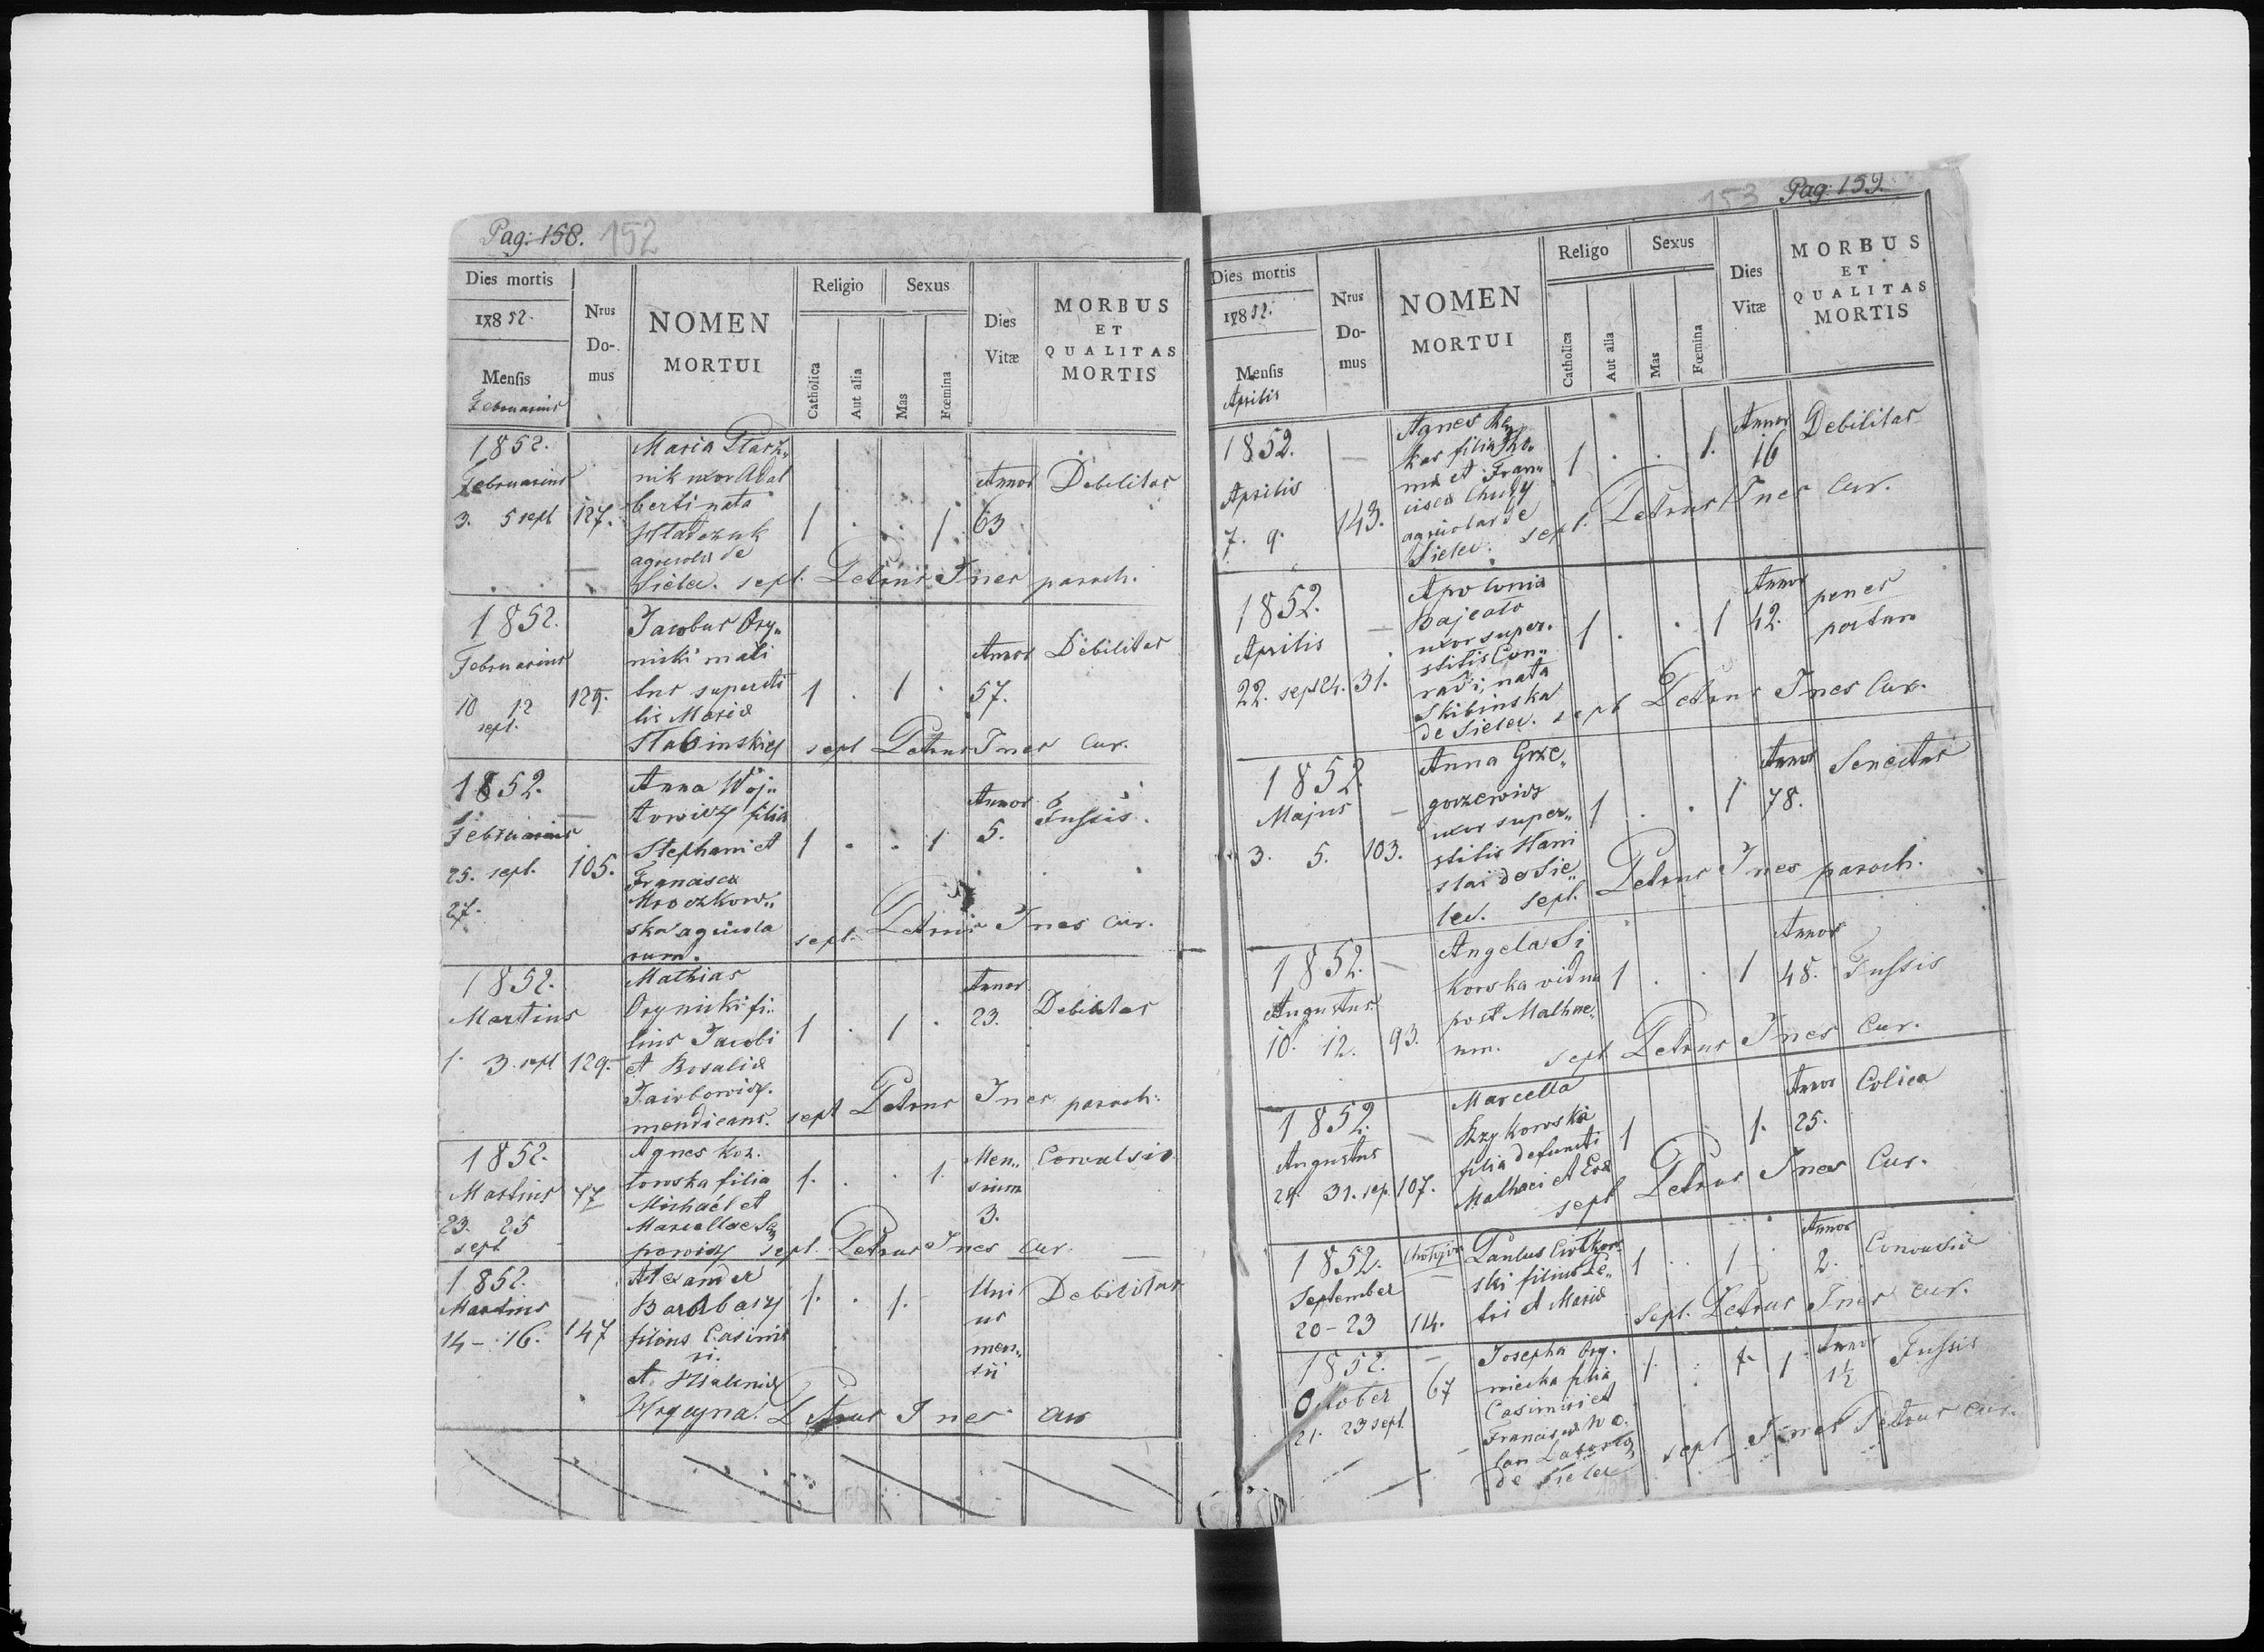 Pag: 158. 152
Dies mortis
1852.
Mensis
Februarius
Nrus
Do-
mus
NOMEN
MORTUI
Religio
Catholica
Aut alia
Sexus
Mas
Fœmina
Dies
Vitæ
MORBUS
ET
QUALITAS
MORTIS
1852.
Februarius
3. 5 sept 127.
Maria Ptasz„
nik uxor Adal
berti nata
agricolis de
Sielec. sept. Petrus Ines paroch.
1 . . 1.
Annor
63
Debilitas
1852.
Februarius
10 12
sept.
129.
Jacobus Ory„
nicki mari
tus supersti
tis Mariæ
Stabinskich sept Petrus Ines Cur.
1 . 1 .
Annor
57.
Debilitas
1852.
Februarius
25. sept.
27.
105.
Anna Woj„
towicz filia
Stephani et
Francisca
Mroczkow„
ska agricola
rum. sept. Petrus Ines Cur.
1 . . 1
Annor
5.
Tussis.
1852.
Martius
1. 3. sept 129.
Mathias
Orynicki fi„
lius Jacobi
et Rosaliæ
Jacubowicz.
mendicans. sept Petrus Ines paroch.
1 . 1 .
Annor
23.
Debilitas
1852.
Martius
23. 25
sept
77
Agnes Koz.
towska filia
Michaél et
Marcellae Sa
powicz sept. Petrus Ines Cur.
1. . . 1.
Men„
sium
3.
Convulsio
1852.
Martius
14 - 16. 147
Alexander
Barabasz
filius Casimi
ri.
et
Hrycyna. Petrus Ines cur
1. . 1. -
Uni
us
men„
sii
Debilitas
153 Pag: 159.
Dies mortis
1852.
Mensis
Aprilis
Nrus
Do-
mus
NOMEN
MORTUI
Religo
Catholica
Aut alia
Sexus
Mas
Fœmina
Dies
Vitæ
MORBUS
ET
QUALITAS
MORTIS
1852.
Aprilis
7. 9. 143.
Agnes
kas filia Tho„
mæ et Fran„
cisca Chudy
agricolar de
Sielec. sept. Petrus Ines Cur.
1 . . 1.
Annor
16
Debilitas
1852.
Aprilis
22. sept 24. 31.
Apolonia
Bajcato
uxor super.
stitis Con„
radi, nata
Skibinska
de Sielec. sept Petrus Ines Cur.
1 . . 1
Annor
42.
penes
partum
1852.
Majus
3. 5. 103.
Anna Grze„
gorzewicz
uxor super„
stitis Stani
slai de Sie„
lec. sept. Petrus Ines paroch.
1 . . 1
Annor
78.
Senectus
1852.
Augustus
10. 12. 93.
Angela Si
korska vidua
post Mathae„
um. sept Petrus Ines Cur.
1 . . 1
Annor
48.
Tussis
1852.
Augustus
29. 31. sep. 107.
Marcella
Krzykowska
filia defuncti
Mathaei et Evæ
sept Petrus Ines Cur.
1 . . 1.
Annor
25.
Colica
1852.
September
20 - 23 14.
Paulus Ciotkow
ski filius Pe„
tri et Mariæ sept. Petrus Ines Cur.
1 . . 1 .
Annor
2.
Convulsio
1852.
October
21. 23 sept.
67
Josepha Ory.
niecka filia
Casimiri et
Franciscæ Wo.
lan
de Sielec sept Ines Petrus Cur.
1. . 1
Annor
1½
Tussis